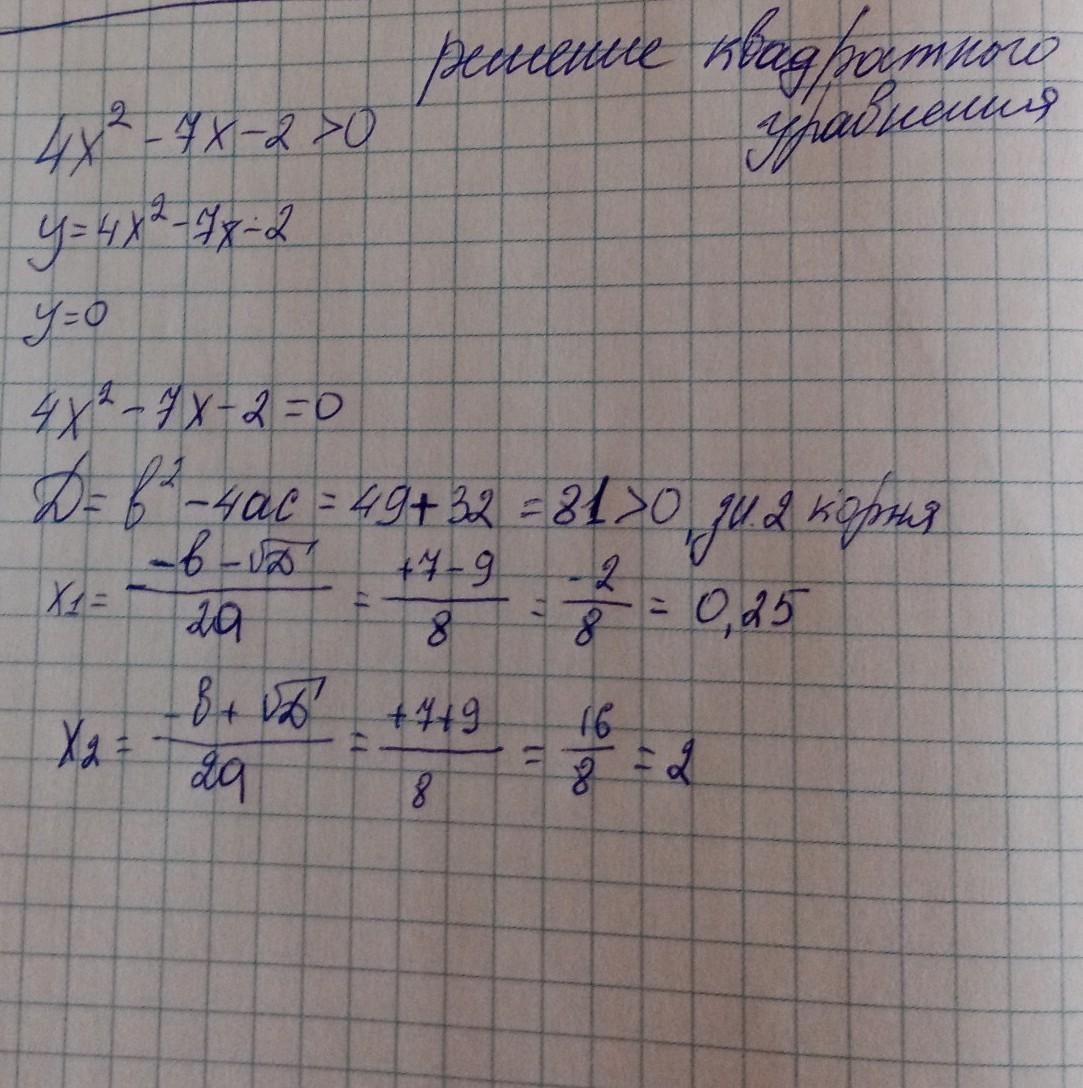 решение квадратного
уравнения
4x² - 7x - 2 > 0
y = 4x² - 7x - 2
y = 0
4x² - 7x - 2 = 0
D = b² - 4ac = 49 + 32 = 81 > 0, зн. 2 корня
x1 = (-b - √D)/2a = (+7 - 9)/8 = (-2)/8 = 0,25
x2 = (-b + √D)/2a = (+7+9)/8 = 16/8 = 2